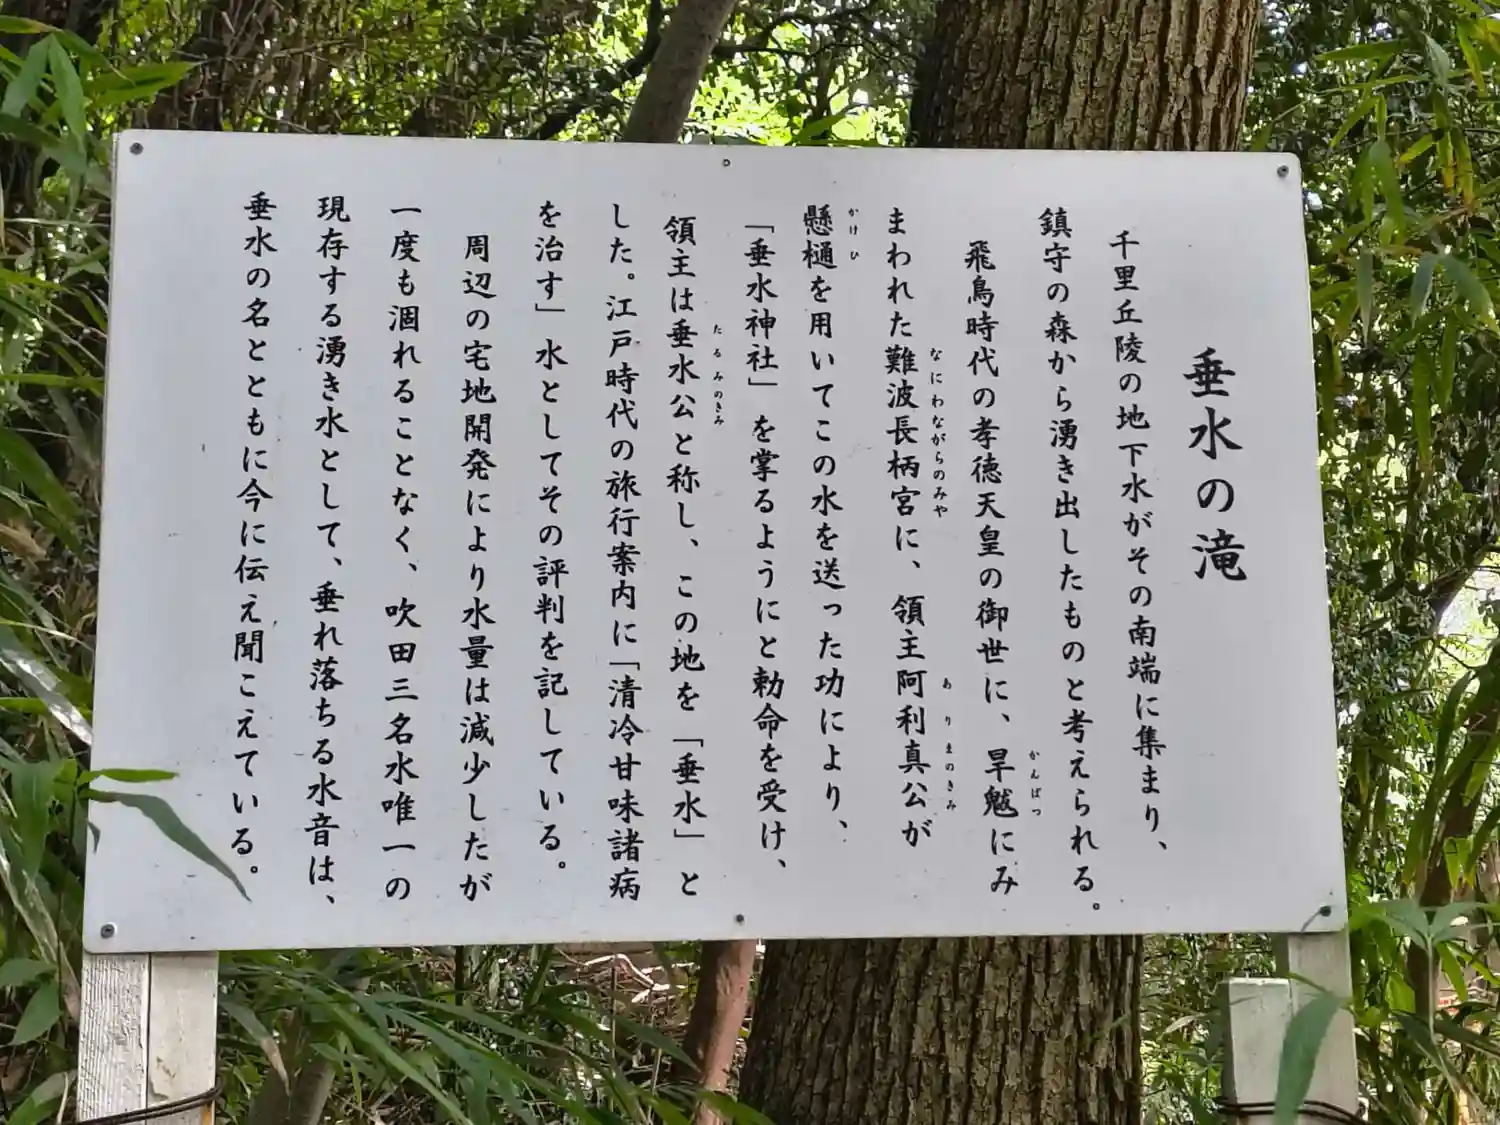 垂水の滝
千里丘陵の地下水がその南端に集まり、
鎮守の森から湧き出したものと考えられる。
飛鳥時代の孝徳天皇の御世に、旱魃にみ
かんばつ
まわれた難波長柄宮に、領主阿利真公が
なにわながらのみや
ありまのきみ
懸樋を用いてこの水を送った功により、
かけひ
「垂水神社」を掌るようにと勅命を受け、
領主は垂水公と称し、この地を「垂水」と
たるみのきみ
した。江戸時代の旅行案内に「清冷甘味諸病
を治す」水としてその評判を記している。
周辺の宅地開発により水量は減少したが
一度も涸れることなく、吹田三名水唯一の
現存する湧き水として、垂れ落ちる水音は、
垂水の名とともに今に伝え聞こえている。